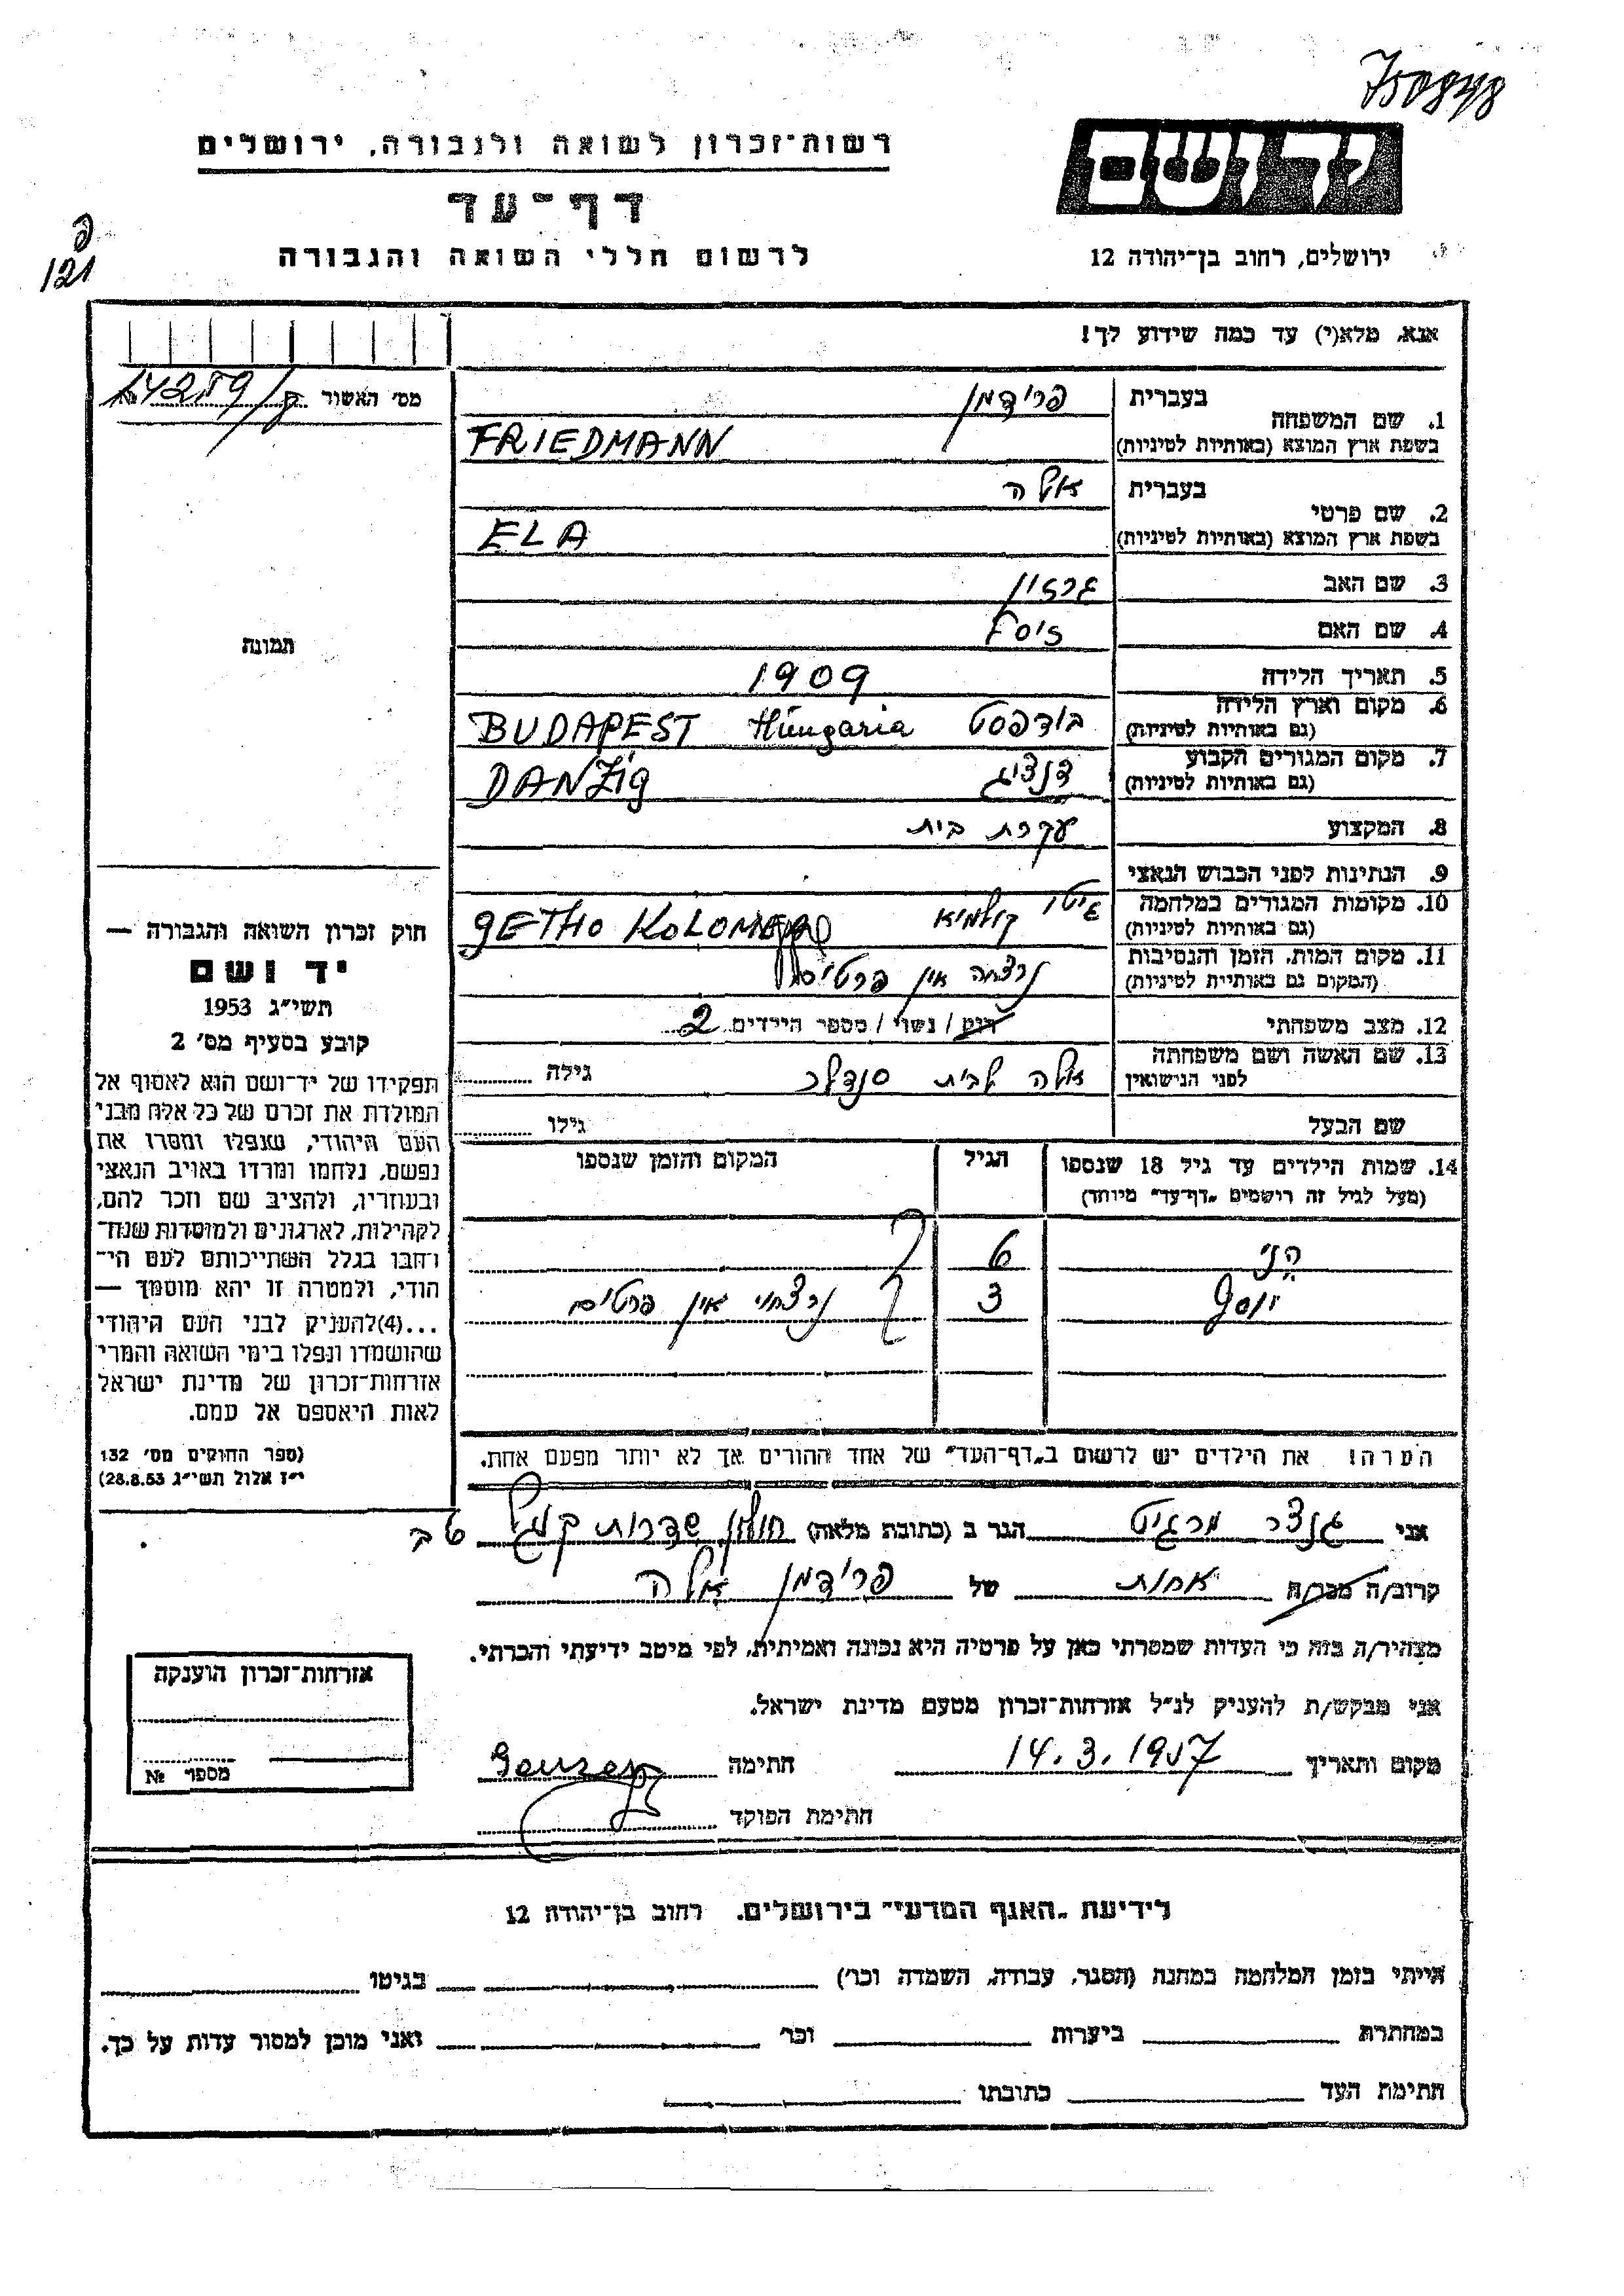 750848
רשות־זכרון לשואה ולגבורה, ירושלים
יד ושם
דף־עד
לרשום חללי השואה והגבורה
ירושלים, רחוב בן־יהודה 12
פ
121
אנא, מלא(י) עד כמה שידוע לך!
מס' האשור 14259/ק
1. שם המשפחה בעברית פרידמן
בשפת ארץ המוצא (באותיות לטיניות) FRIEDMANN
2. שם פרטי בעברית אלה
בשפת ארץ המוצא (באותיות לטיניות) ELA
3. שם האב גרשון
4. שם האם
5. תאריך הלידה 1909
6. מקום וארץ הלידה (גם באותיות לטיניות) בודפסט Hungaria BUDAPEST
7. מקום המגורים הקבוע (גם באותיות לטיניות) דנציג DANZig
8. המקצוע עקרת בית
9. הנתינות לפני הכבוש הנאצי
10. מקומות המגורים במלחמה (גם באותיות לטיניות) גיטו קולומיא GETHO
11. מקום המות, הזמן והנסיבות (המקום גם באותיות לטיניות) נרצחה אין פרטים
12. מצב משפחתי רווק / נשוי / מספר הילדים 2
13. שם האשה ושם משפחתה לפני הנישואין אלה לבית סנדלר גילה
שם הבעל גילו
14. שמות הילדים עד גיל 18 שנספו (מעל לגיל זה רושמים „דף־עד" מיוחד) הגיל המקום והזמן שנספו
הני 6
יוסף 3 נרצחו אין פרטים
הערה! את הילדים יש לרשום ב„דף־העד" של אחד ההורים אך לא יותר מפעם אחת.
תמונה
חוק זכרון השואה והגבורה —
יד ושם
תשי"ג 1953
קובע בסעיף מס' 2
תפקידו של יד־ושם הוא לאסוף אל
המולדת את זכרם של כל אלה מבני
העם היהודי, שנפלו ומסרו את
נפשם, נלחמו ומרדו באויב הנאצי
ובעוזריו, ולהציב שם וזכר להם,
לקהילות, לארגונים ולמוסדות שנח־
רחבו בגלל השתייכותם לעם הי־
הודי, ולמטרה זו יהא מוסמך —
...(4)להעניק לבני העם היהודי
שהושמדו ונפלו בימי השואה והמרי
אזרחות־זכרון של מדינת ישראל
לאות היאספם אל עמם.
(ספר החוקים מס' 132
י"ז אלול תשי"ג 28.8.53)
אני גנצר מרגיט הגר ב (כתובת מלאה) חולון שדרות קוגל 9 ב
קרוב/ה מכר/ה אחות של פרידמן אלה
מצהיר/ה בזה כי העדות שמסרתי כאן על פרטיה היא נכונה ואמיתית, לפי מיטב ידיעתי והכרתי.
אני מבקש/ת להעניק לנ"ל אזרחות־זכרון מטעם מדינת ישראל.
מקום ותאריך 14.3.1957 חתימה
חתימת הפוקד
אזרחות־זכרון הוענקה
מספר №
לידיעת „האגף המדעי" בירושלים. רחוב בן־יהודה 12
הייתי בזמן המלחמה במחנה (הסגר, עבודה, השמדה וכו') בגיטו
במחתרת ביערות וכו' ואני מוכן למסור עדות על כך.
חתימת העד כתובתו